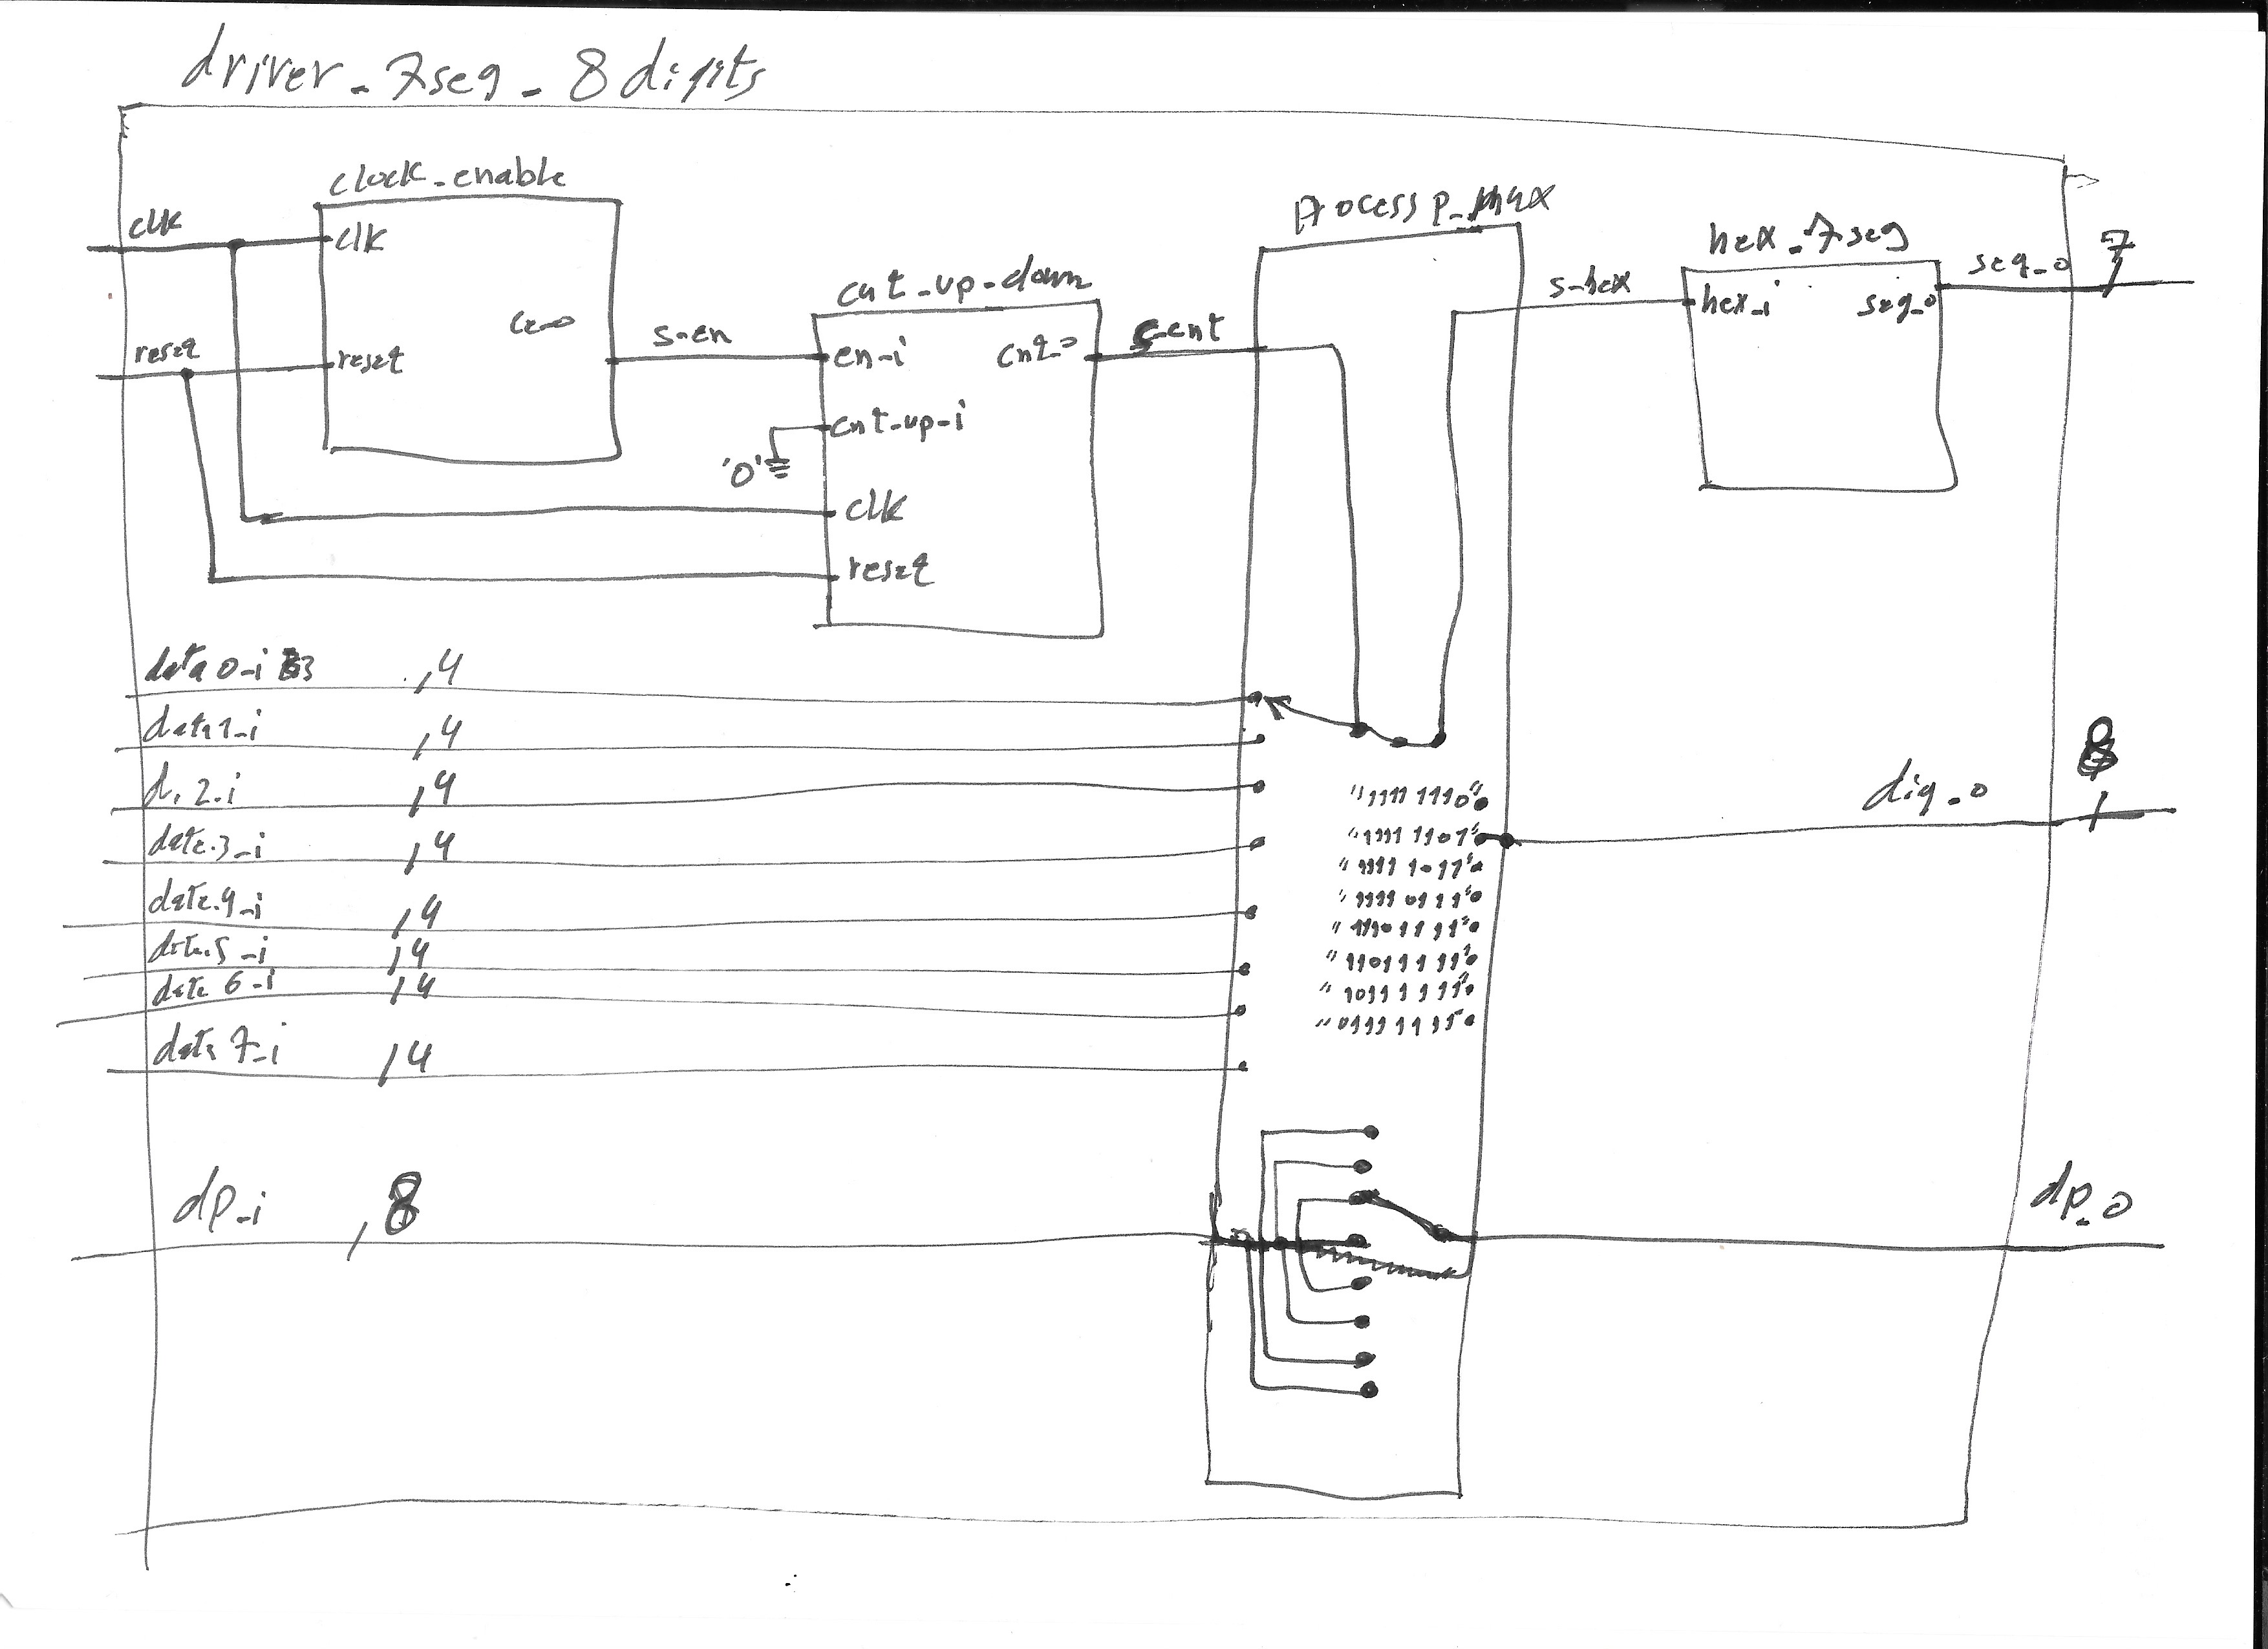 driver_7seg_8digits
clock_enable
clk
clk
ce_o
reset
reset
s_en
cnt_up_down
en_i
cnt_o
cnt_up_i
'0'
clk
reset
s_cnt
Process p_mux
s_hex
hex_7seg
hex_i
seg_o
seg_o
7
data0_i 3 ,4
data1_i ,4
d. 2_i ,4
data.3_i ,4
data.4_i ,4
data.5_i ,4
data 6_i ,4
data 7_i ,4
"1111 1110"
"1111 1101"
"1111 1011"
"1111 0111"
"11101111"
"11011111"
"10111111"
"01111111"
dig_o
8
dp_i ,8
dp_o